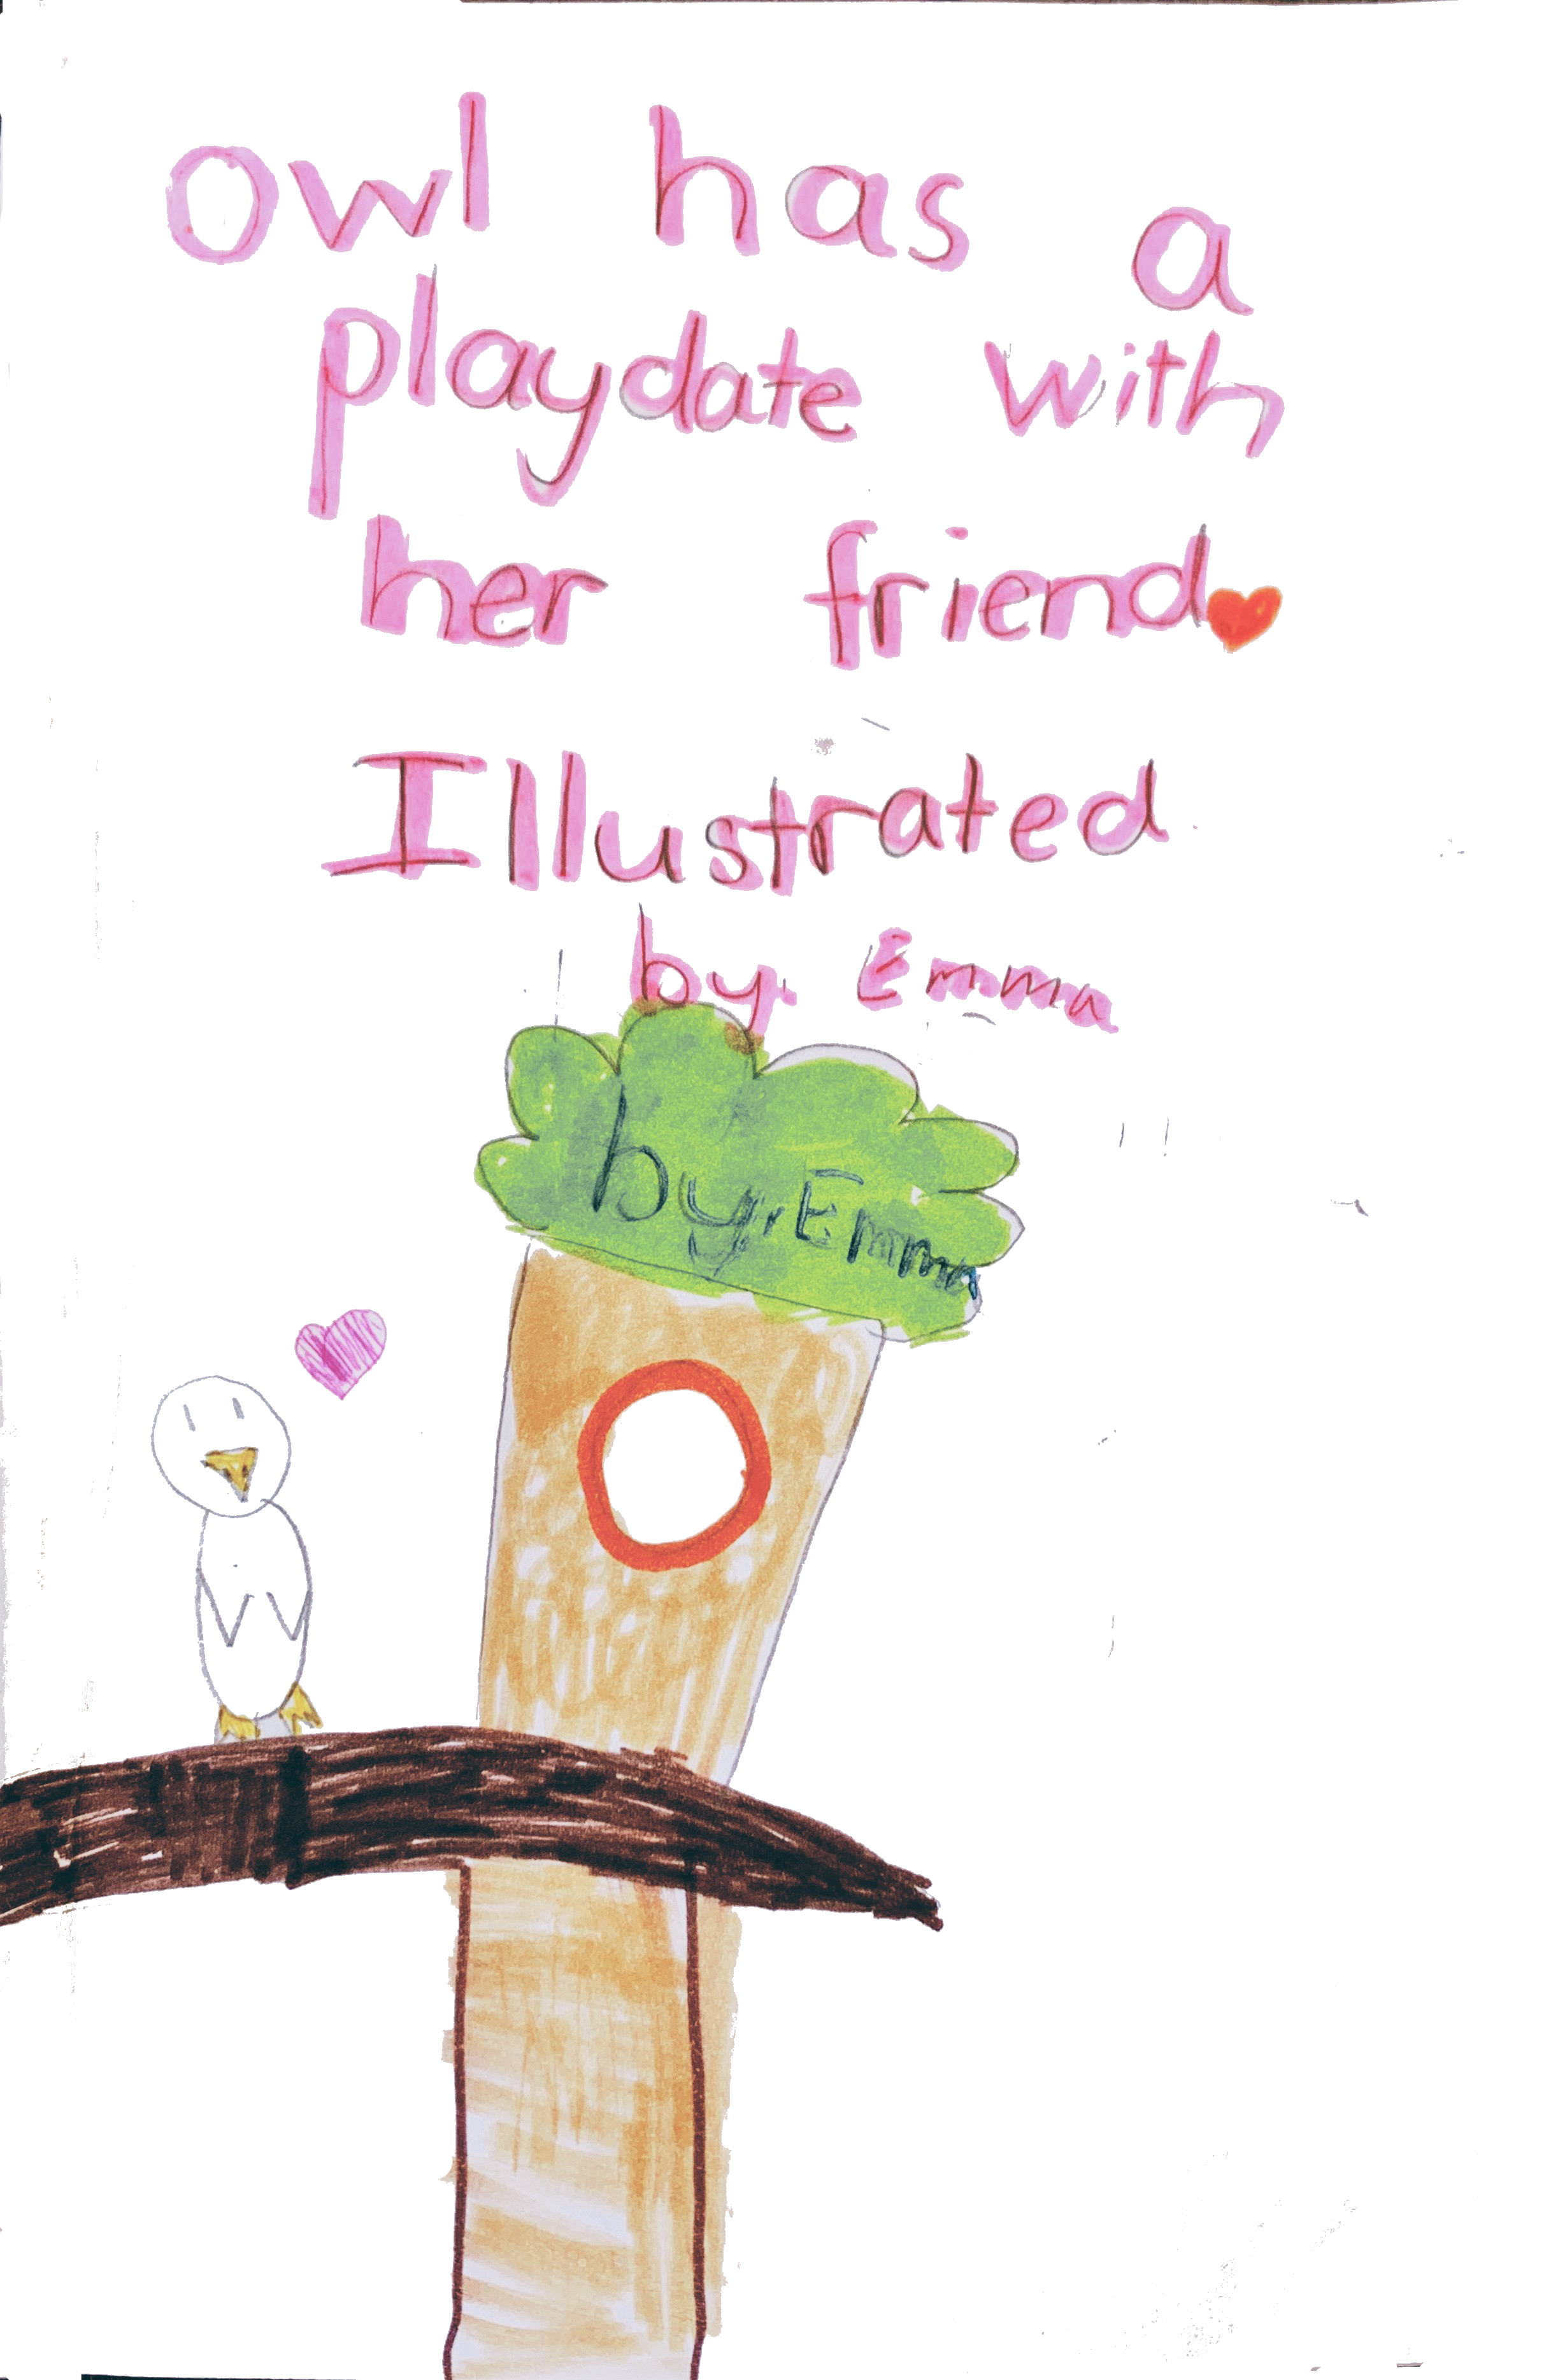 Owl has a
playdate with
her friend
Illustrated
by Emma
by Emma